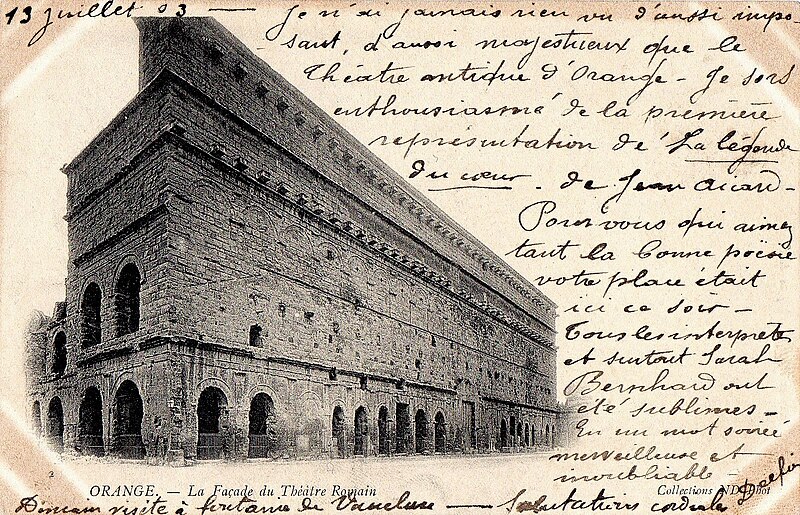 13 juillet 03 — Je n'ai jamais rien vu d'aussi impo-
sant, d'aussi majestueux que le
Théatre antique d'Orange - Je sors
enthousiasmé de la première
représentation de "La légende
du cœur - de Jean Aicard -
Pour vous qui aimez
tant la bonne poésie
votre place était
ici ce soir -
Tous les interprètes
et surtout Sarah
Bernhard ont
été sublimes -
En un mot soirée
merveilleuse et
inoubliable -
ORANGE. — La Façade du Théâtre Romain
Collections ND Phot
Demain visite à fontaine de Vaucluse — Salutations cordiales